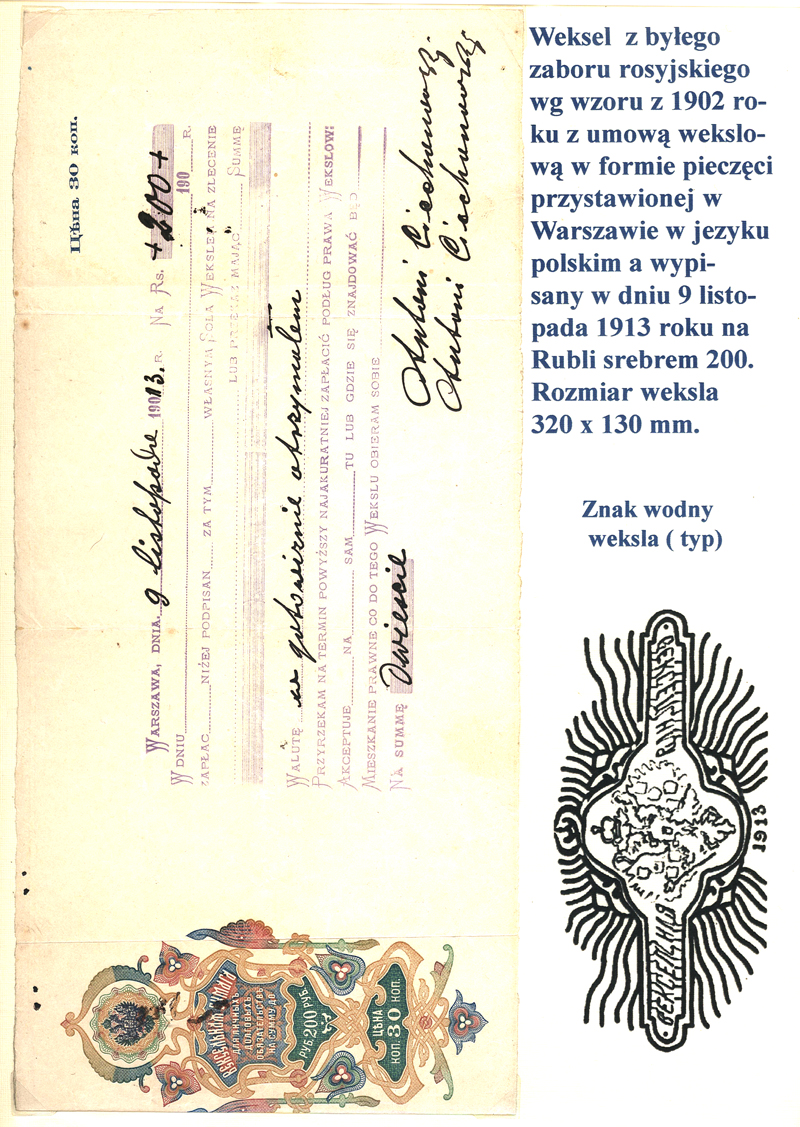 Weksel z byłego
zaboru rosyjskiego
wg wzoru z 1902 ro-
ku z umową wekslo-
wą w formie pieczęci
przystawionej w
Warszawie w jezyku
polskim a wypi-
sany w dniu 9 listo-
pada 1913 roku na
Rubli srebrem 200.
Rozmiar weksla
320 x 130 mm.
Znak wodny
weksla ( typ)
1913
Цѣна 30 коп.
WARSZAWA, DNIA 9 listopada 190 13. R. NA RS. +200+
W DNIU 190 R.
ZAPŁAC NIŻEJ PODPISAN ZA TYM WŁASNYM SOLA WEKSLEM NA ZLECENIE
LUB MAJĄC SUMMĘ
WALUTĘ w gotowiznie otrzymałem
PRZYRZEKAM NA TERMIN POWYŻSZY NAJAKURATNIEJ ZAPŁACIĆ PODŁUG PRAWA WEKSLOW:
AKCEPTUJE NA SAM TU LUB GDZIE SIĘ ZNAJDOWAĆ BĘD
MIESZKANIE PRAWNE CO DO TEGO WEKSLU OBIERAM SOBIE
NA SUMMĘ Dwieście
Antoni
Antoni
ВЕКСЕЛЬНАЯ БУМАГА
ДЛЯ ЛИЧНЫХЪ
ДОЛГОВЫХЪ
ОБЯЗАТЕЛЬСТВЪ
НА СУММУ ДО
РУБ. 200 РУБ.
ЦѢНА
КОП. 30 КОП.